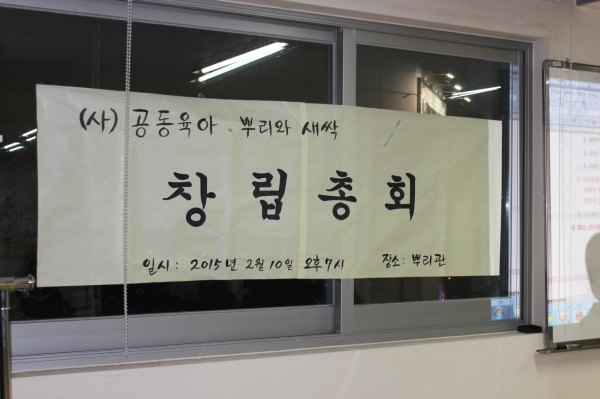 (사) 공동육아 뿌리와 새싹
창립총회
일시: 2015년 2월 10일 오후7시 장소: 뿌리관